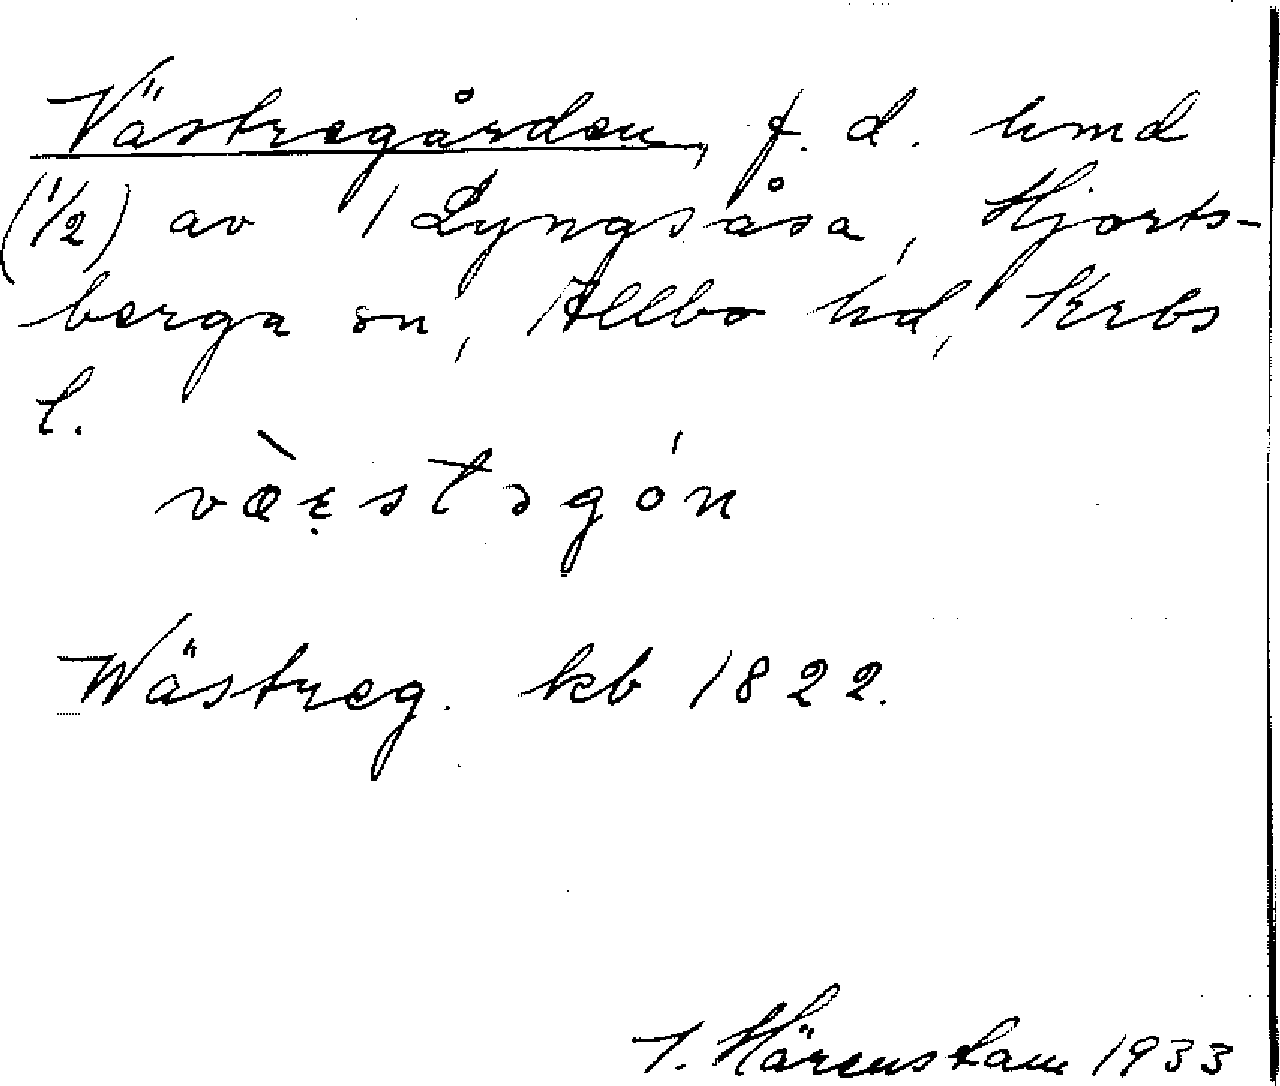 Västregården, f. d. hmd
(1/2) av 1 Lyngsåsa, Hjorts-
berga sn, Allbo hd, Krbs
l.
Västreg. kb 1822.
Härenstam 1933